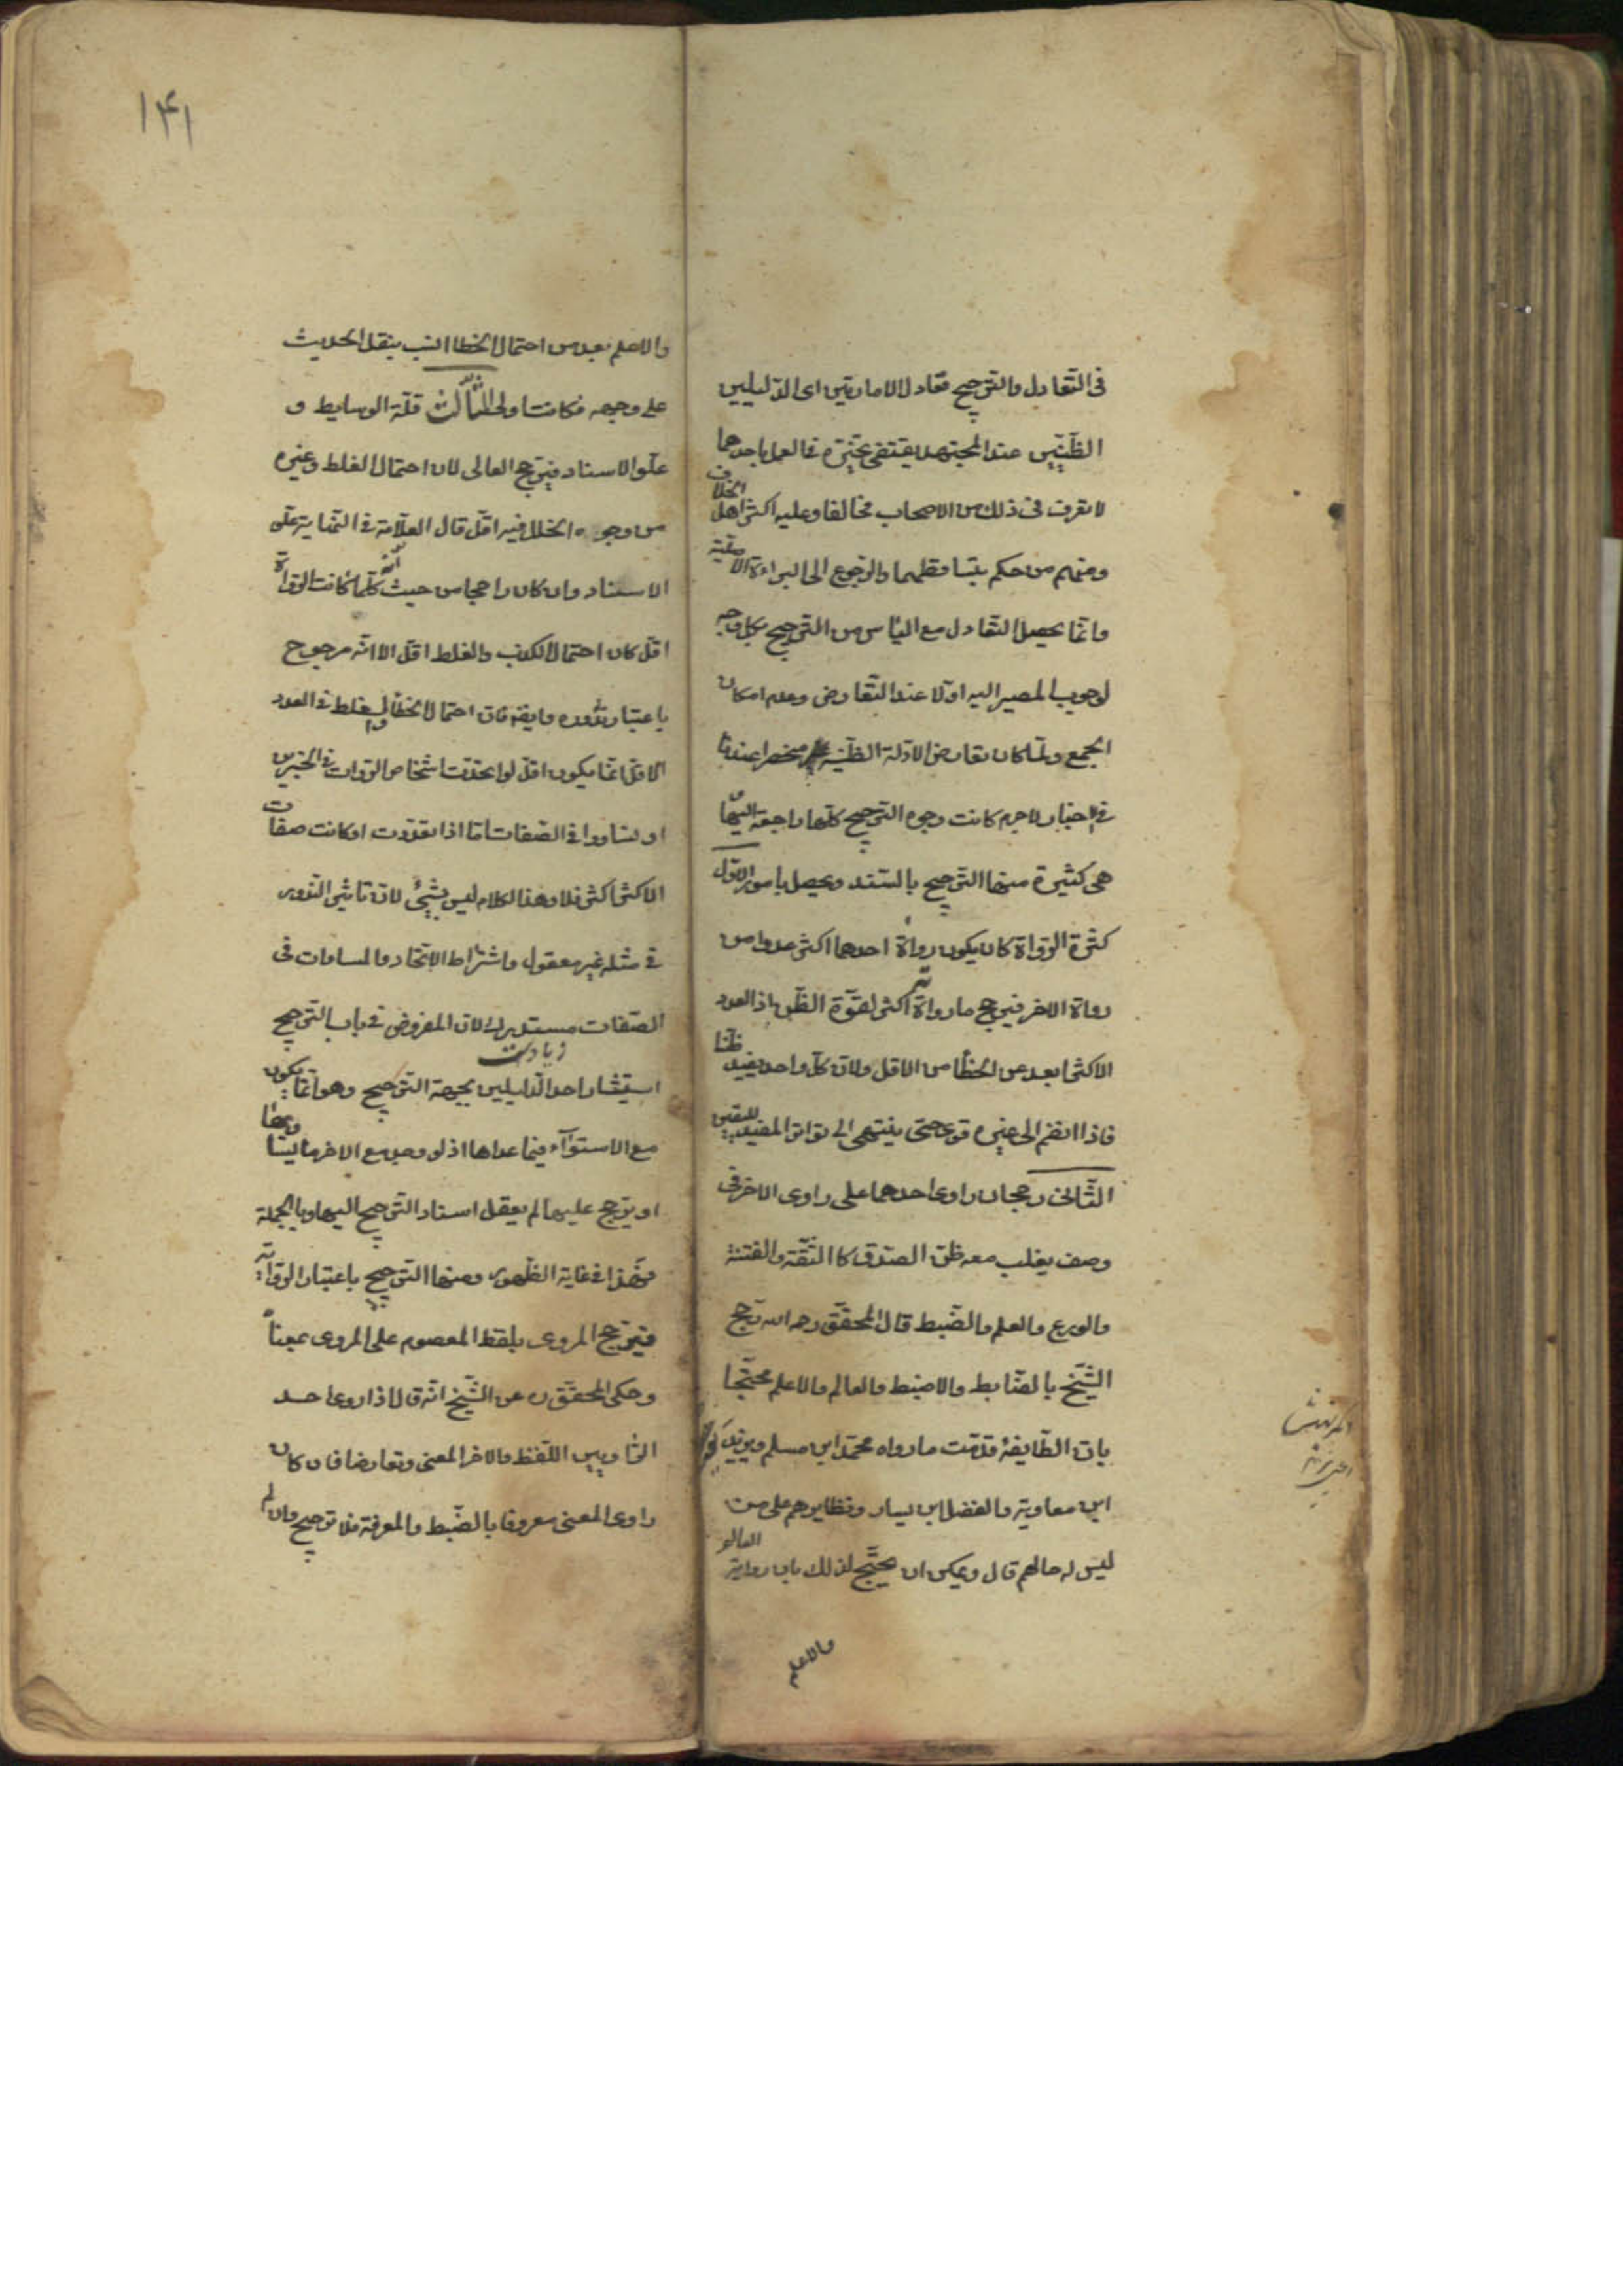 فى التّعادل والترجيح تعادل الامارتين اى الدّليلين
الظنّيين عند المجتهد يقتضى تخيّره فى العمل باحدهما
لا نعرف فى ذلك من الاصحاب مخالفا وعليه اكثر اهل الخلاف
ومنهم من حكم بتساقطهما والرّجوع الى البراءة الاصليّة
وانّما يحصل التّعادل مع الياس من الترجيح بكل وجه
لوجوب المصير اليه اولا عند التّعارض وعدم امكان
الجمع ولمّا كان تعارض الادلة الظنّيّة منحصرا عندنا
فى الاخبار لاجرم كانت وجوه الترجيح كلّها راجعة اليها و
هى كثيرة منها الترجيح بالسّند ويحصل بامور الاوّل
كثرة الرّواة كان يكون رواة احدهما اكثر عددا من
رواة الاخر فيرجح ما رواته اكثر لقوّة الظّن اذ العدد
الاكثر ابعد عن الخطأ من الاقل ولان كلّ واحد يفيد ظنّا
فاذا انضم الى غيره قوى حتى ينتهى الى تواتر المفيد لليقين
الثّانى رجحان راوى احدهما على راوى الاخر فى
وصف يغلب معه ظنّ الصّدق كاالثّقة والفتنة
والورع والعلم والضّبط قال المحقّق رحمه الله رجح
الشّيخ بالضّابط والاضبط والعالم والاعلم محتجّا
بانّ الطّايفة قدّمت ما رواه محمّد ابن مسلم وبريد
ابن معاوية والفضل ابن يسار ونظايرهم على من
ليس له حالهم قال ويمكن ان يحتجّ لذلك بان رواية العالم
والاعلم
١۴١
والاعلم بعد من احتمال الخطا انسب بنقل الحديث
على وجهه فكانت اولى الثّالث قلّة الوسايط و
علوّ الاسناد فيرجح العالى لان احتمال الغلط وغيره
من وجوه الخلل فيه اقل قال العلّامة فى النّهاية علّو
الاسناد وان كان راجحا من حيث انّه كلّما كانت الرّواة
اقل كان احتمال الكذب والغلط اقل الا انّه مرجوح
باعتبار ندوره وايضا فان احتمال الخطأ والغلط فى العدد
الاقل انّما يكون اقل لو اتحدت اشخاص الرّوات فى الخبرين
او تساووا فى الصّفات امّا اذا تعدّدت او كانت صفات
الاكثر اكثر فلا وهذا الكلام ليس بشيئ لان تاثير النّدور
فى مثله غير معقول واشتراط الاتحاد والمساوات فى
الصّفات مستدرك لان المفروض فى باب الترجيح
استيثار احد الدّليلين بجهة الترجيح زيادت وهو انّما يكون
مع الاستوآء فيما عداها اذ لو وجد مع الاخر ما يساويها
او يترجح عليها لم يعقل اسناد الترجيح اليها وبالجملة
فهذا فى غاية الظّهور ومنها الترجيح باعتبار الرّواية
فيرجح المروى بلفظ المعصوم على المروى بمعناه
وحكى المحقّق ره عن الشّيخ انّه قال اذا روى احد
الرّاويين اللّفظ والاخر المعنى وتعارضا فان كان
راوى المعنى معروفا بالضّبط والمعرفة فلا ترجيح وان لم